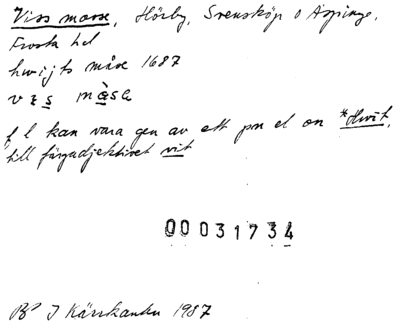 Viss masse, Hörby, Svensköp o Äspinge,
Frosta hd
hwijts måse 1687
f l kan vara gen av ett pn el on *Hvit,
till färgadjektivet vit
00031734
1987